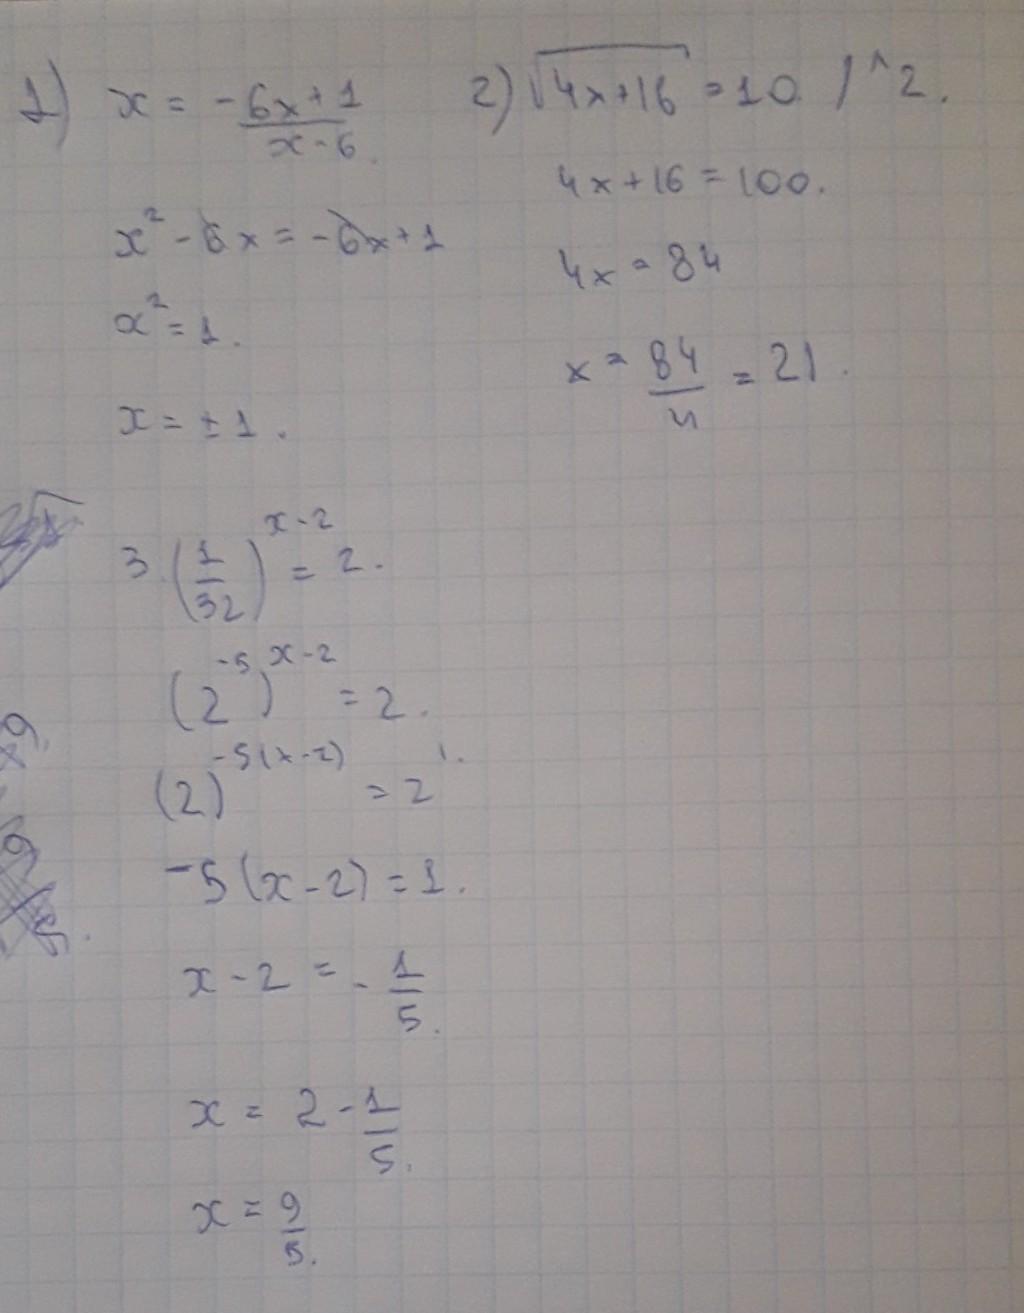 1) x = -6x+1 / x-6.
x² - 6x = -6x+1
x² = 1.
x = ±1.
2) √4x+16 = 10. / ^2.
4x+16 = 100.
4x = 84
x = 84/4 = 21.
3. (1/32)^x-2 = 2.
(2^-5)^x-2 = 2.
(2)^-5(x-2) = 2^1.
-5(x-2) = 1.
x-2 = -1/5.
x = 2-1/5.
x = 9/5.